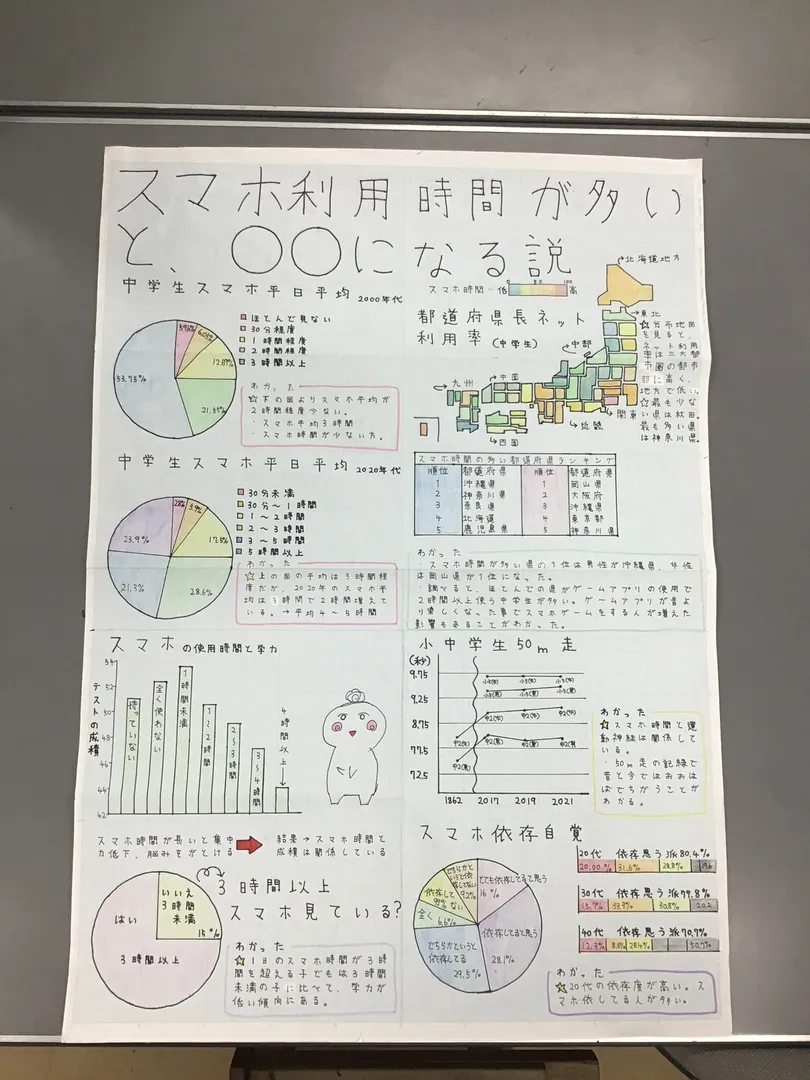 スマホ利用時間が多い
と、〇〇になる説
中学生スマホ平日平均 2000年代
ほとんど見ない
30分程度
1時間程度
2時間程度
3時間以上
12.89%
21.35%
53.75%
わかった
☆下の図よりスマホ平均が
2時間程度少ない。
・スマホ平均3時間
・スマホ時間が少ない方。
中学生スマホ平日平均 2020年代
30分未満
30分〜1時間
1〜2時間
2〜3時間
3〜5時間
5時間以上
28.6%
21.3%
23.9%
わかった
☆上の図の平均は3時間程
度だが、2020年のスマホ平
均は3時間で2時間増えて
いる。→平均4〜5時間
スマホ時間…低 0 50 100 高
都道府県長ネット
利用率(中学生)
北海道地方
東北
中部
関東
近畿
中国
四国
九州
☆分布地図
を見ると、
ネット利用
率は三大都
市圏の都市
部に高く、
地方で低い。
☆最も少な
い県は秋田。
最も多い県
は神奈川県。
スマホ時間の多い都道府県ランキング
順位 都道府県 順位 都道府県
1 沖縄県 1 岡山県
2 神奈川県 2 大阪府
3 奈良県 3 沖縄県
4 北海道 4 東京都
5 鹿児島県 5 神奈川県
わかった
・スマホ時間が多い県の1位は男性が沖縄県、女性
は岡山県が1位になった。
・調べると、ほとんどの県がゲームアプリの使用で
2時間以上使う中学生が多い。ゲームアプリが昔よ
り楽しくなった事でスマホゲームをする人が増えた
影響もあることがわかった。
スマホの使用時間と学力
テストの成績
54
52
50
48
46
44
42
持っていない
全く使わない
1時間未満
1〜2時間
2〜3時間
3〜4時間
4時間以上
スマホ時間が長いと集中
力低下、脳みそがとける
結果→スマホ時間と
成績は関係している
小中学生50m走
(秒)
9.75
9.25
8.75
77.5
72.5
小5(女) 小5(女) 小5(女)
小5(男) 小5(男) 小5(男)
中2(女) 中2(女) 中2(女) 中2(女)
中2(男) 中2(男) 中2(男) 中2(男)
1862 2017 2019 2021
わかった
☆スマホ時間と運
動神経は関係して
いる。
・50m走の記録で
昔と今ではおおは
ばでちがうことが
わかる。
3時間以上
スマホ見ている?
はい
3時間以上
いいえ
3時間
未満
15%
わかった
☆1日のスマホ時間が3時
間を超える子どもは3時間
未満の子に比べて、学力が
低い傾向にある。
スマホ依存自覚
とても依存してると思う
16%
依存してると思う
28.1%
どちらかというと
依存してる
29.5%
全く 6.6%
9.2%
20代 依存思う派80.4%
20.00% 31.6% 28.8%
30代 依存思う派79.8%
30.8% 20.2
40代 依存思う派70.7%
12.3%
わかった
☆20代の依存度が高い。ス
マホ依してる人が多い。